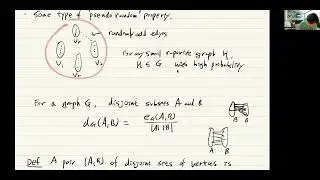 - Some type of pseudo random property.
random add edges
V_r
V_1
V_2
For any small r-partite graph H,
H ⊆ G with high probability
For a graph G, disjoint subsets A and B
d_G(A,B) = e_G(A,B) / |A| |B|
A B
A B
Def A pair (A,B) of disjoint sets of vertices is